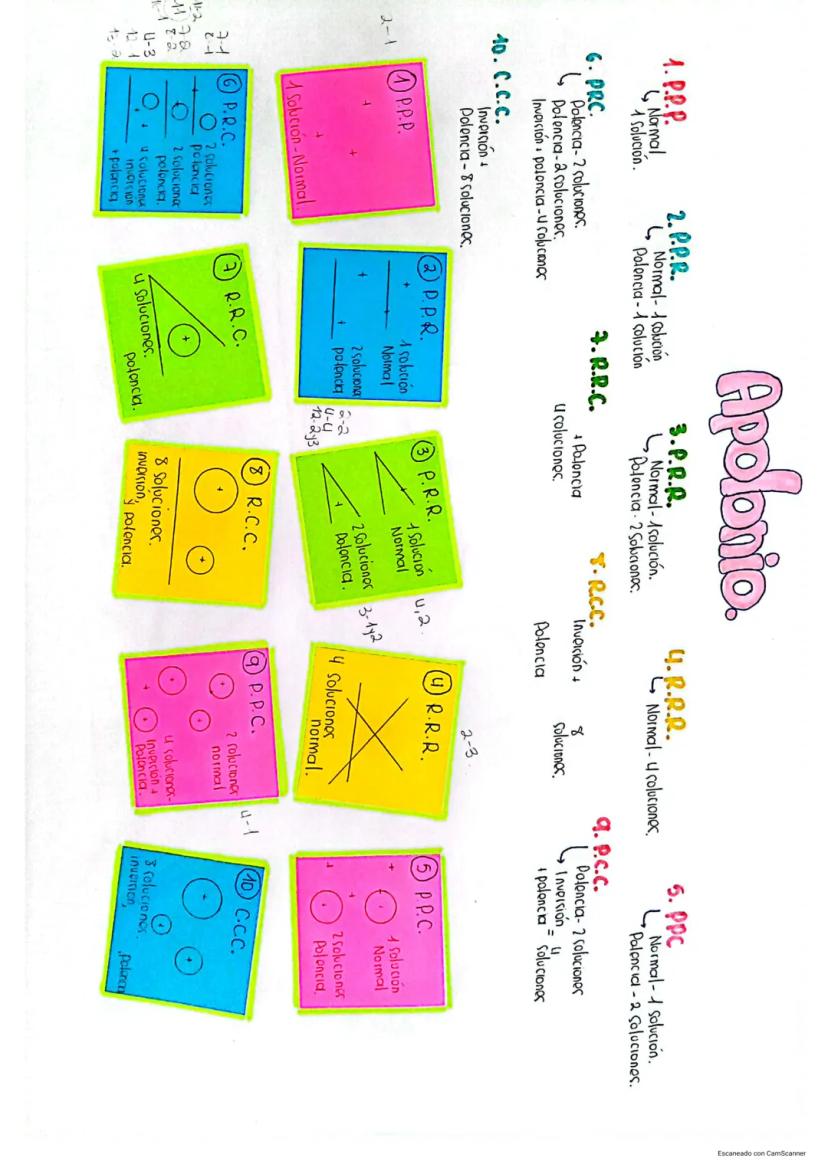 Apolonio.
1. P.P.P
↳ Normal
1 solución.
2. P.P.R.
↳ Normal - 1 solución
Potencia - 1 solución
3. P.R.R.
↳ Normal - 1 solución.
Potencia - 2 soluciones.
4. R.R.R.
↳ Normal - 4 soluciones.
5. PPC
↳ Normal - 1 solución.
Potencia - 2 soluciones.
6. PRC.
↳ Potencia - 2 soluciones.
Potencia - 2 soluciones.
Inversión + potencia - 4 soluciones
7. R.R.C.
+ Potencia
4 soluciones.
8. R.C.C.
Inversión +
Potencia
8
soluciones.
9. P.C.C.
Potencia - 2 soluciones
↳ Inversión
+ potencia = 4 soluciones
10. C.C.C.
Inversión +
Potencia - 8 soluciones.
2-1
① P.P.P.
1 solución - Normal.
② P.P.R.
1 solución
Normal
2 soluciones
potencia
2-2
4-4
12-2y3
③ P.R.R.
1 solución
Normal
2 soluciones
Potencia.
4,2.
3-1y2
④ R.R.R.
4 soluciones
normal.
2-3.
⑤ P.P.C.
1 solución
Normal
2 soluciones
Potencia.
7-1
8-1
7-2
8-2
4-3
12-1
⑥ P.R.C.
2 soluciones
potencia
2 soluciones
potencia.
4 soluciones
inversión
+ potencia
⑦ R.R.C.
4 soluciones.
potencia.
⑧ R.C.C.
8 soluciones.
inversión, y potencia.
⑨ P.P.C.
2 soluciones
normal
4 soluciones-
Inversión +
Potencia.
4-1
⑩ C.C.C.
8 soluciones.
inversión,
potencia
Escaneado con CamScanner